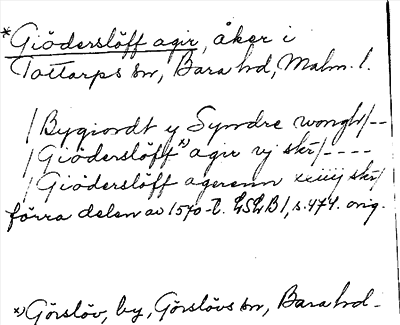 *Giöderslöff agir, åker i
Tottarps sn, Bara hd, Malm. l.
/Bygiordt y Syndre wongh/--
/Giöderslöff x) agir vj skr/----
/Giöderslöff agerenn xiiiij skr/
förra delen av 1570-t. LSLB I, s. 474. orig.
x) Görslöv, by, Görslövs sn, Bara hd.